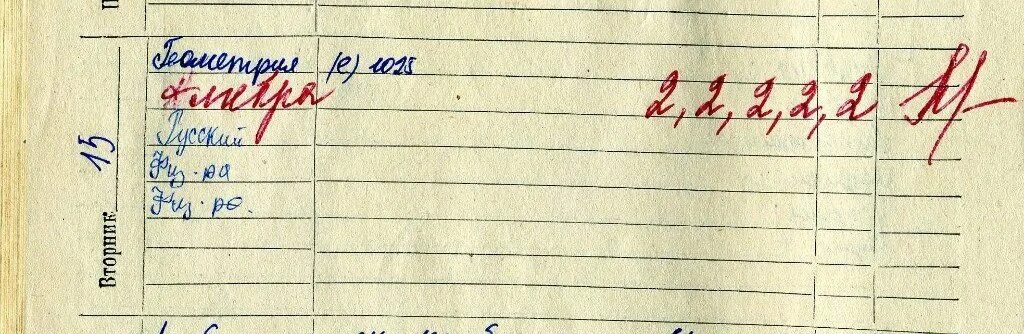 Геометрия (е) 1025
Алгебра 2, 2, 2, 2, 2
Русский
Физ-ра
Физ-ра.
15
Вторник